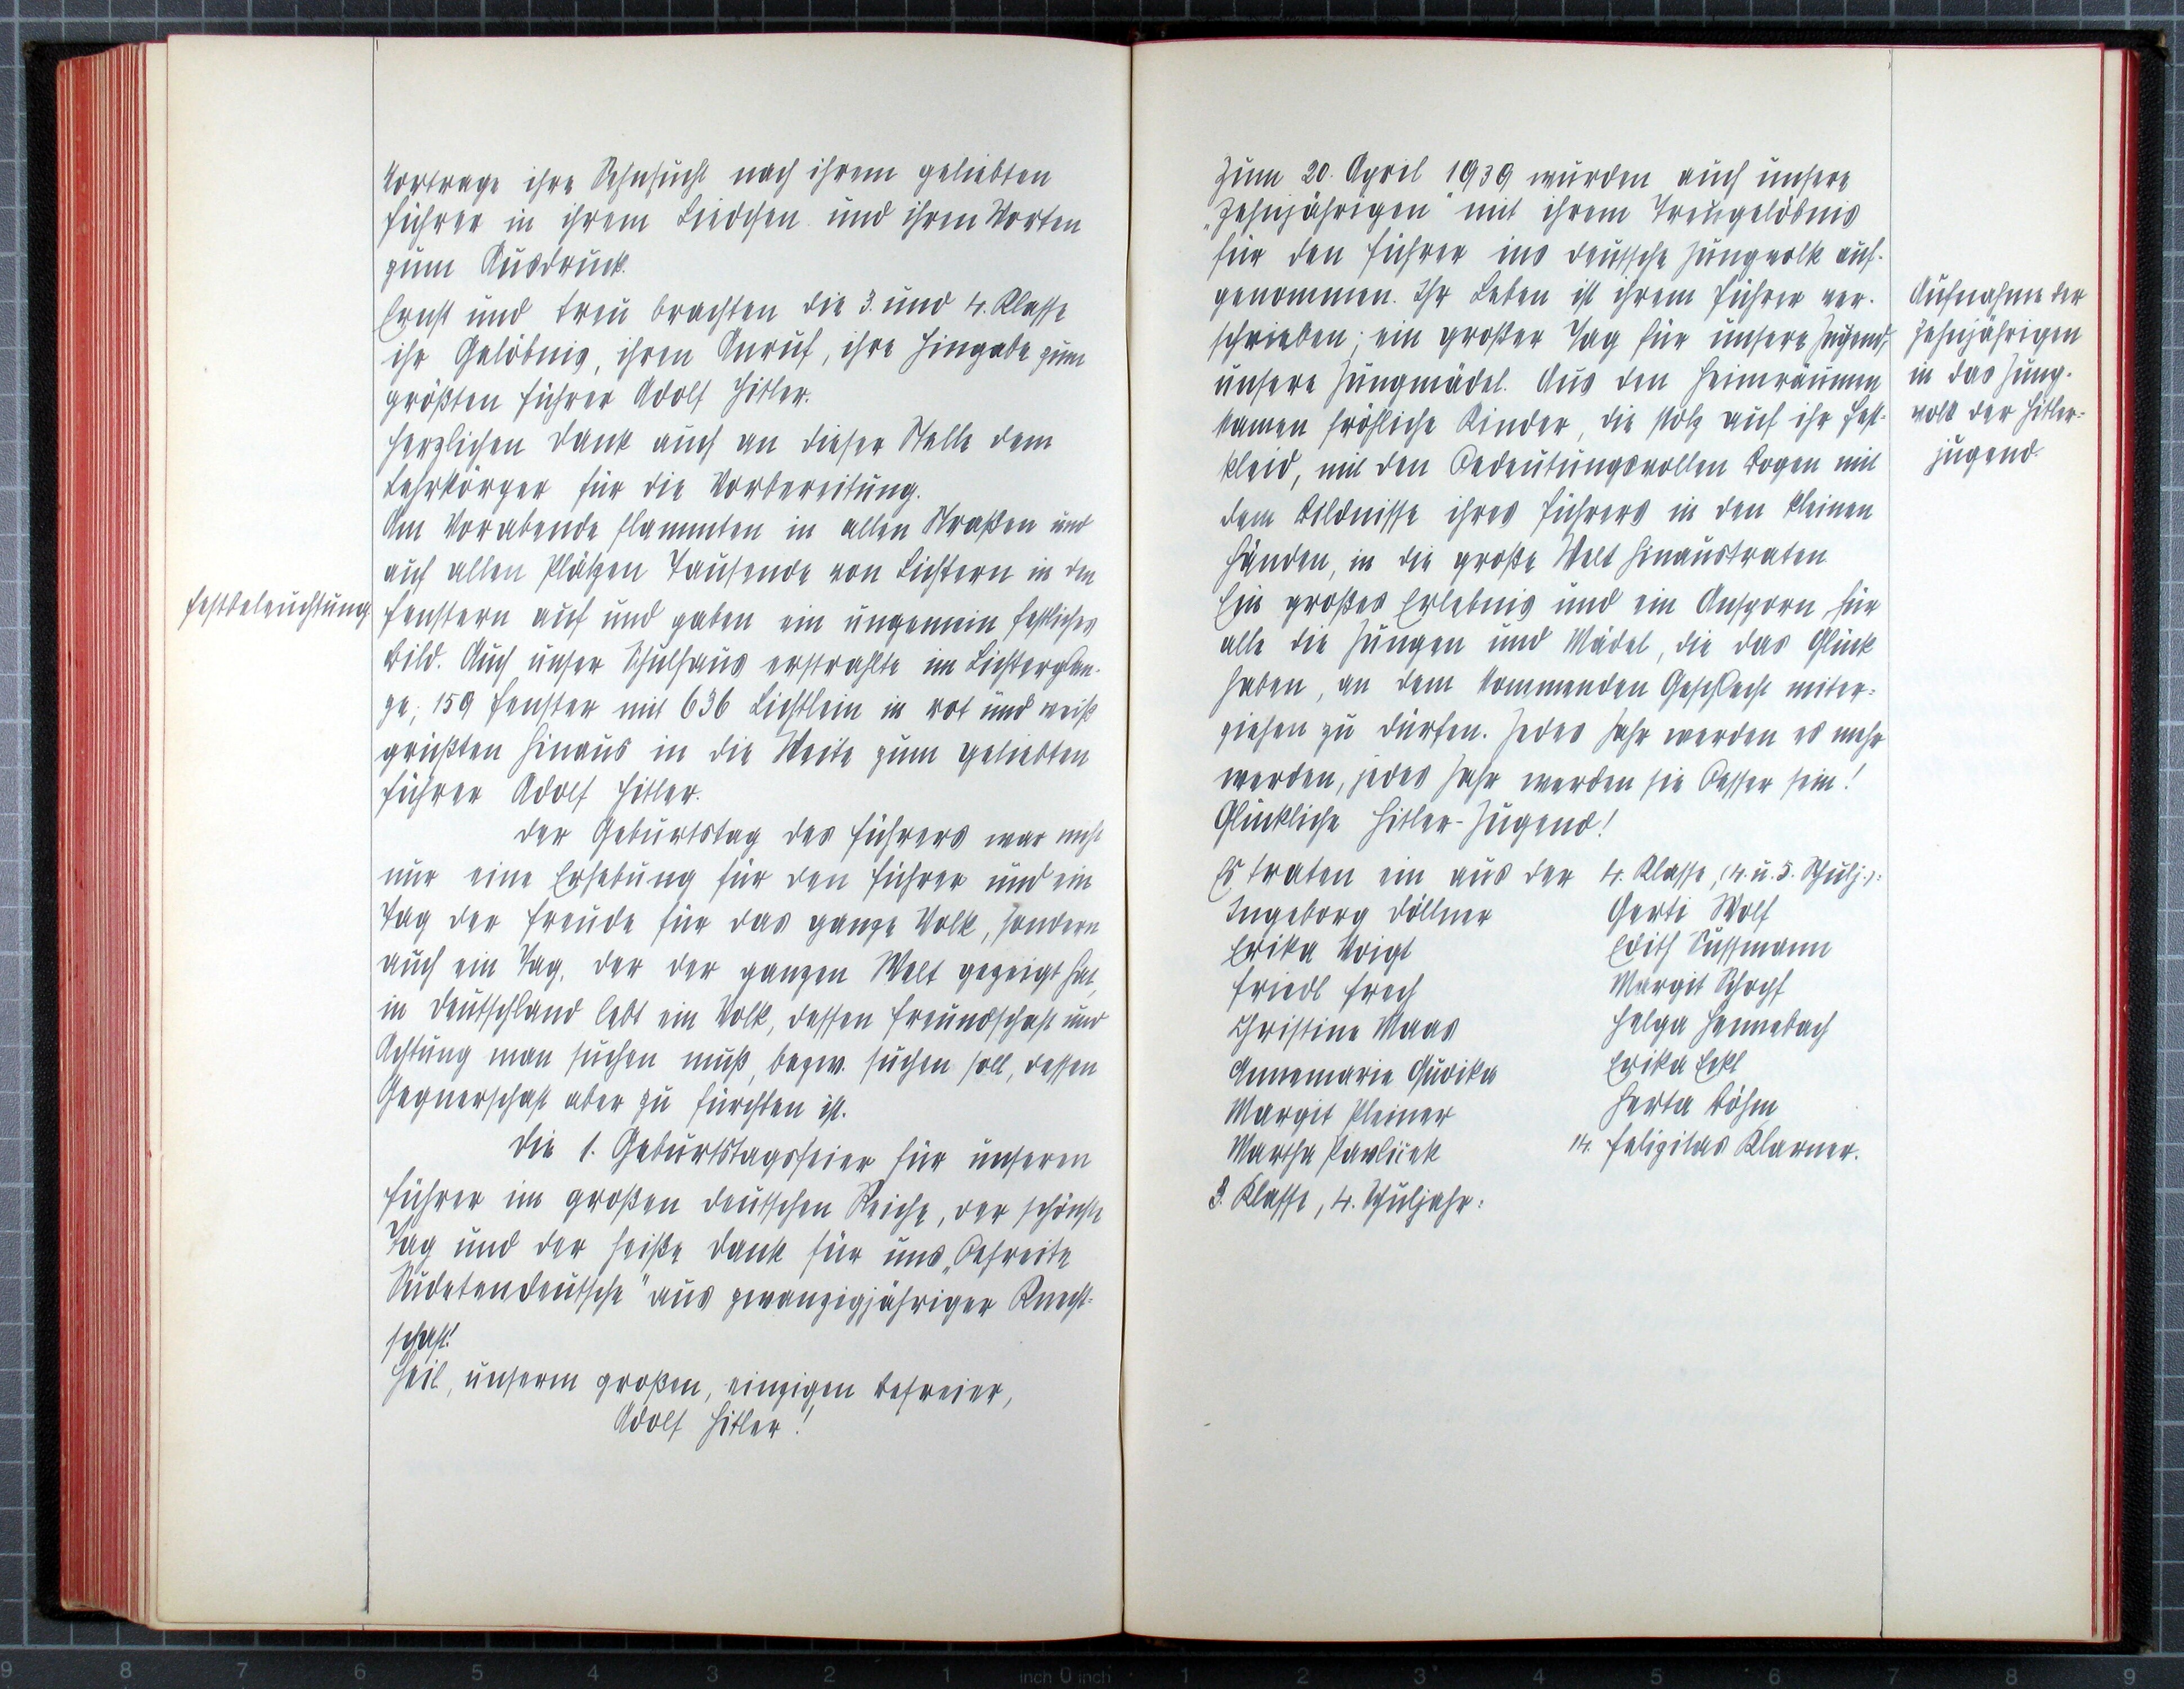 Vortrage ihre Sehnsucht nach ihrem geliebten
Führer in ihrem Liedchen und ihren Worten
zum Ausdruck.
Ernst und treu brachten die 3. und 4. Klasse
ihr Gelöbnis, ihren Anruf, ihre Hingabe zum
größten Führer Adolf Hitler.
Herzlichen Dank auch an dieser Stelle dem
Lehrkörper für die Vorbereitung.
Am Vorabende flammten in allen Straßen und
auf allen Plätzen Tausende von Lichtern in den
Festbeleuchtung
Fenstern auf und gaben ein ungemein festliches
Bild. Auch unser Schulhaus erstrahlte im Lichterglan-
ze; 159 Fenster mit 636 Lichtlein in rot und weiß
grüßten hinaus in die Weite zum geliebten
Führer Adolf Hitler.
Der Geburtstag des Führers war nicht
nur eine Erhebung für den Führer und ein
Tag der Freude für das ganze Volk, sondern
auch ein Tag, der der ganzen Welt gezeigt hat,
in Deutschland lebt ein Volk, dessen Freundschaft und
Achtung man suchen muß, bezw. suchen soll, dessen
Gegnerschaft aber zu fürchten ist.
Die 1. Geburtstagsfeier für unseren
Führer im großen deutschen Reiche, der schönste
Tag und der heiße Dank für uns „befreite
Sudetendeutsche" aus zwanzigjähriger Knecht-
schaft!
Heil, unserm großen, einzigen Befreier,
Adolf Hitler!
Zum 20. April 1939 wurden auch unsere
„Zehnjährigen" mit ihrem Treugelöbnis
für den Führer ins deutsche Jungvolk auf-
genommen. Ihr Leben ist ihrem Führer ver-
schrieben; ein großer Tag für unsere Jugend,
unsere Jungmädel. Aus den Heimräumen
kamen fröhliche Kinder, die stolz auf ihr Fest-
kleid, mit den bedeutungsvollen Bogen mit
dem Bildnisse ihres Führers in den kleinen
Händen, in die große Welt hinaustraten
Ein großes Erlebnis und ein Ansporn für
alle die Jungen und Mädel, die das Glück
haben, an dem kommenden Geschlecht miter-
ziehen zu dürfen. Jedes Jahr werden es mehr
werden, jedes Jahr werden sie besser sein!
Glückliche Hitler-Jugend!
Aufnahme der
Zehnjährigen
in das Jung-
volk der Hitler-
jugend.
Es traten ein aus der 4. Klasse, (4. u. 5. Schulj.):
Ingeborg Döllner
Erika Voigt
Friedl Frech
Christine Maas
Annemarie Gudika
Margit Pleiner
Martha Pawlicek
Gerti Wolf
Edith Sussmann
Margit Schopf
Helga Hennebach
Erika Eckl
Herta Böhm
14. Felizitas Klarner.
3. Klasse, 4. Schuljahr:
9 8 7 6 5 4 3 2 1 inch 0 inch 1 2 3 4 5 6 7 8 9